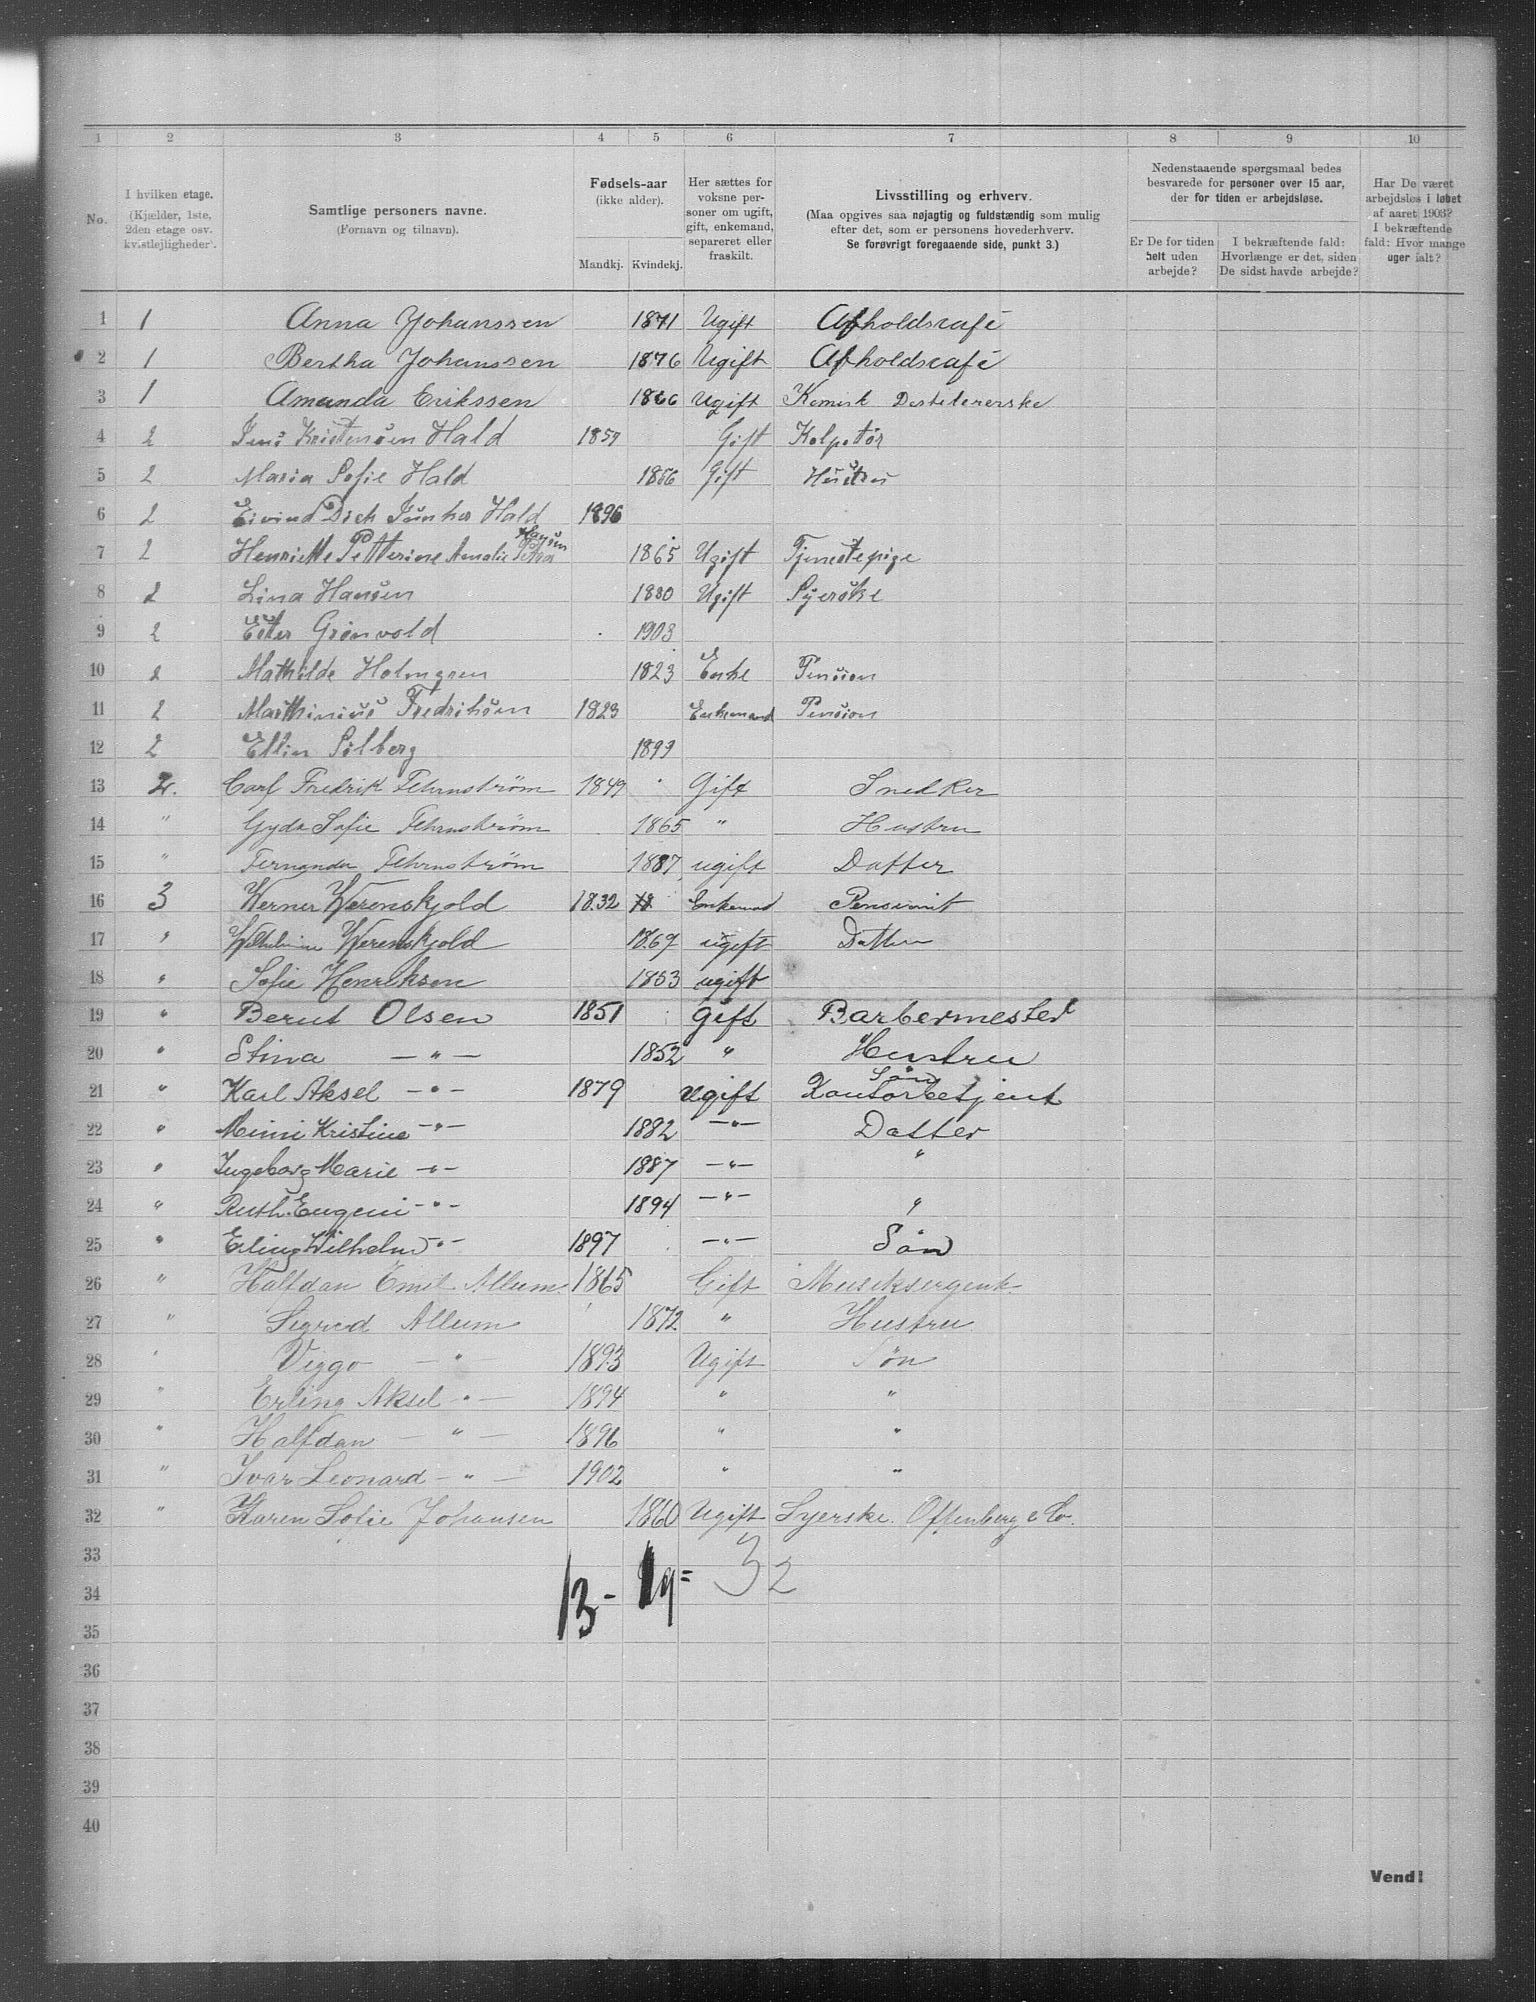 1 2 3 4 5 6 7 8 9 10
No.
I hvilken etage. (Kjælder, 1ste, 2den etage osv. kvistlejligheder).
Samtlige personers navne. (Fornavn og tilnavn).
Fødsels-aar (ikke alder).
Mandkj. Kvindekj.
Her sættes for voksne personer om ugift, gift, enkemand, separeret eller fraskilt.
Livsstilling og erhverv. (Maa opgives saa nøjagtig og fuldstændig som mulig efter det, som er personens hovederhverv. Se forøvrigt foregaaende side, punkt 3.)
Nedenstaaende spørgsmaal bedes besvarede for personer over 15 aar, der for tiden er arbejdsløse.
Er De for tiden helt uden arbejde?
I bekræftende fald: Hvorlænge er det, siden De sidst havde arbejde?
Har De været arbejdsløs i løbet af aaret 1903? I bekræftende fald: Hvor mange uger ialt?
1 1 Anna Johanssen 1871 Ugift Afholdscafé
2 1 Bertha Johanssen 1876 Ugift Afholdscafé
3 1 Amanda Erikssen 1866 Ugift Kemisk Destelererske
4 2 Jens Kristensen Hald 1859 Gift Kolpotør
5 2 Maria Sofie Hald 1856 Gift Hustru
6 2 Eivind Dick Junker Hald 1896
7 2 Henriette Petterine Amalie Hansen 1865 Ugift Tjenestepige
8 2 Lina Hansen 1880 Ugift Syerske
9 2 Ester Grønvold 1903
10 2 Mathilde Holmgren 1823 Enke Pension
11 2 Marthinius Fredriksen 1823 Enkemand Pension
12 2 Ellin Solberg 1899
13 2. Carl Fredrik Fehrnstrøm 1849 Gift Snedker
14 " Gyda Sofie Fehrnstrøm 1865 " Hustru
15 " Fernanda Fehrnstrøm 1887 ugift Datter
16 3 Werner Werenskjold 1832 Enkemand Pensionist
17 " Wilhelmine Werenskjold 1869 ugift Datter
18 " Sofie Henriksen 1853 ugift
19 " Bernt Olsen 1851 Gift Barbermester
20 " Stina — " — 1852 " Hustru
21 " Karl Aksel — " — 1879 Ugift Søn Kontorbetjent
22 " Mimi Kristine — " — 1882 — " — Datter
23 " Ingeborg Marie — " — 1887 — " — "
24 " Ruth Eugeni — " — 1894 — " — "
25 " Erling Wilhelm — " — 1897 — " — Søn
26 " Halfdan Emil Allum. 1865 Gift Musiksergent.
27 " Sigrid Allum 1872 " Hustru
28 " Viggo — " — 1893 Ugift Søn
29 " Erling Aksel — " — 1894 " "
30 " Halfdan — " — 1896 " "
31 " Ivar Leonard — " — 1902 " "
32 " Karen Sofie Johansen 1860 Ugift Syerske. Offenberg & Co.
33
34 13 - 19 = 32
35
36
37
38
39
40
Vend!